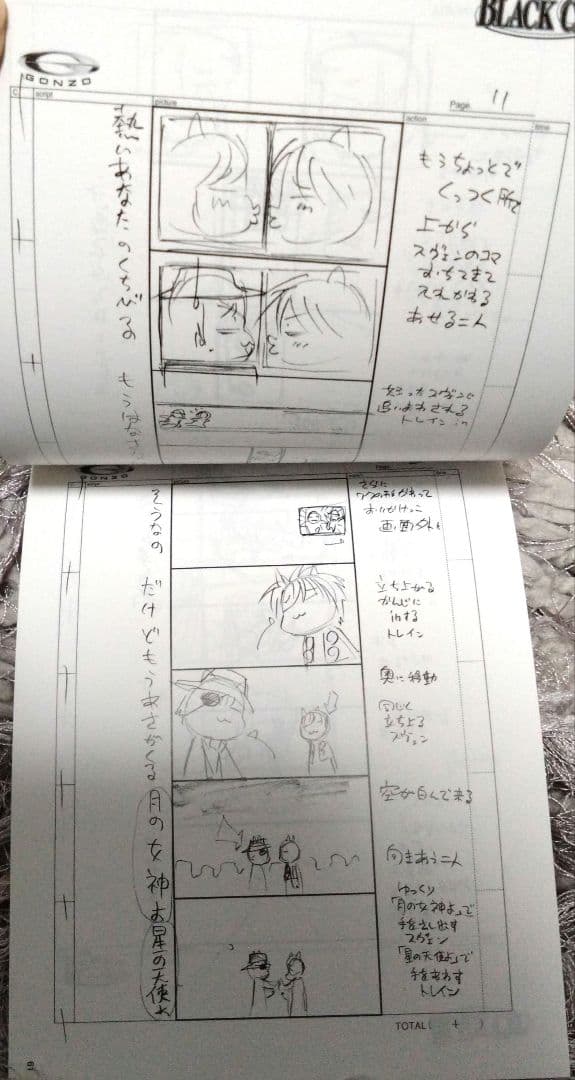 BLACK C
GONZO
script
picture
Page 11
action
time
もうちょっとで
くっつく所で
上から
スヴェンのコマ
おちてきて
入れかわる
あせる二人
熱いあなたのくちびる
怒ったスヴェンに
追いまわされる
トレイン in
もうはなさない
さらに
ワクのおいかけっこ
画面外へ
そうなの
立ち上がる
かんじに
inする
トレイン
だけどもうあさがくる
奥に移動
同じく
立ち上る
スヴェン
空が白んで来る
向きあう二人
月の女神よ
星の天使よ
ゆっくり
「月の女神よ」で
手をさし出す
スヴェン
「星の天使よ」で
手をかえす
トレイン
TOTAL ( + )
61